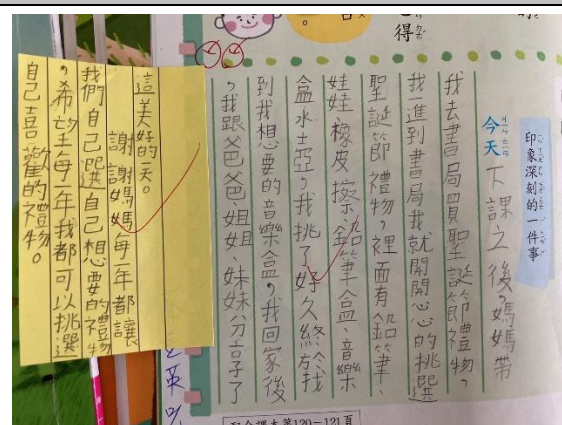 得
印象深刻的一件事
今天下課之後，媽媽帶
我去書局買聖誕節禮物，
我一進到書局我就開開心心的挑選
聖誕節禮物，裡面有鉛筆、
娃娃、橡皮擦、鉛筆盒、音樂
盒水士亞，我挑了好久終於找
到我想要的音樂盒，我回家後
，我跟爸爸、姐姐、妹妹分享了
這美好的天。
謝謝媽媽每一年都讓
我們自己選自己想要的禮物
，希望每一年我都可以挑選
自己喜歡的禮物。
配合課本第120－121頁